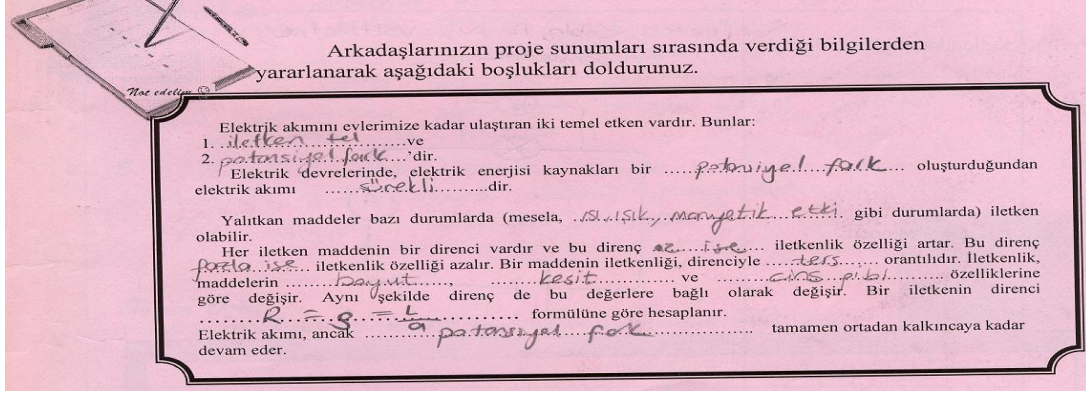 Arkadaşlarınızın proje sunumları sırasında verdiği bilgilerden
yararlanarak aşağıdaki boşlukları doldurunuz.
Not edelim ☺
Elektrik akımını evlerimize kadar ulaştıran iki temel etken vardır. Bunlar:
1. ..iletken tel..........ve
2. potansiyel fark....'dir.
Elektrik devrelerinde, elektrik enerjisi kaynakları bir .....potansiyel fark... oluşturduğundan
elektrik akımı ......sürekli.........dir.
Yalıtkan maddeler bazı durumlarda (mesela, .ısı, ışık, manyetik etki. gibi durumlarda) iletken
olabilir.
Her iletken maddenin bir direnci vardır ve bu direnç az....ise.... iletkenlik özelliği artar. Bu direnç
fazla ise... iletkenlik özelliği azalır. Bir maddenin iletkenliği, direnciyle .....ters....... orantılıdır. İletkenlik,
maddelerin .........boyut....., .......kesit......... ve .........cins gibi......... özelliklerine
göre değişir. Aynı şekilde direnç de bu değerlere bağlı olarak değişir. Bir iletkenin direnci
........R = ρ = L/a ............... formülüne göre hesaplanır.
Elektrik akımı, ancak ...........potansiyel fark............... tamamen ortadan kalkıncaya kadar
devam eder.